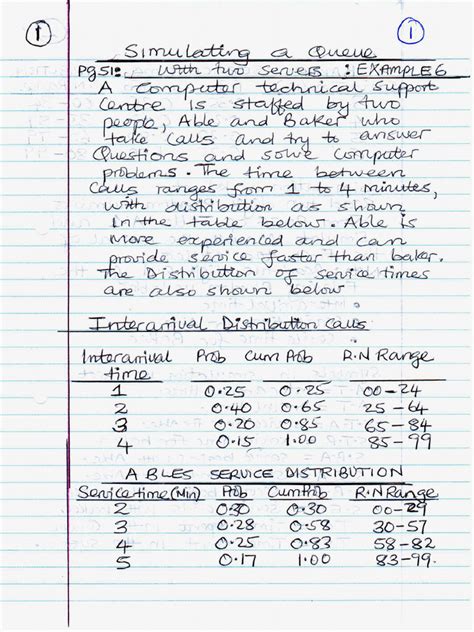 1 1
Simulating a Queue
Pg51: With two servers : EXAMPLE 6
A Computer technical support
Centre is staffed by two
people, Able and Baker who
take Calls and try to answer
Questions and solve computer
problems. The time between
Calls ranges from 1 to 4 minutes,
with distribution as shown
In the table below. Able is
More experienced and can
provide service faster than baker.
The Distribution of service times
are also shown below
Interarrival Distribution Calls
Interarrival Prob Cum Prob R.N Range
time
1 0.25 0.25 00-24
2 0.40 0.65 25-64
3 0.20 0.85 65-84
4 0.15 1.00 85-99
ABLES SERVICE DISTRIBUTION
Service time (Min) Prob Cum Prob R.N Range
2 0.30 0.30 00-29
3 0.28 0.58 30-57
4 0.25 0.83 58-82
5 0.17 1.00 83-99.